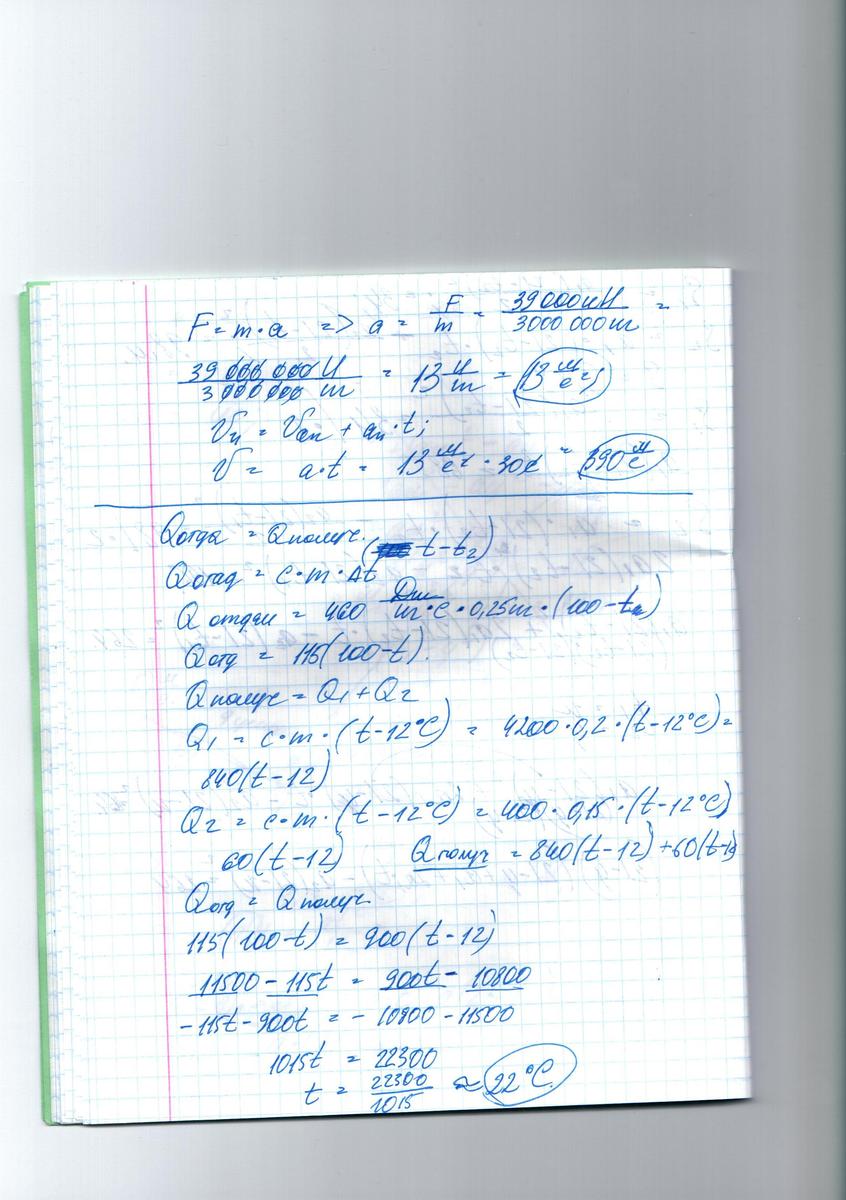 F = m · a => a = F/m = 39000кН/3000 000 кг =
39 000 000 Н/3 000 000 кг = 13 Н/кг = 13 м/с²
Vн = Vон + aн · t;
V = a · t = 13 м/с² · 30с = 390 м/с
Qотда = Qполуч.
Qотад = c · m · Δt (t - t₂)
Qотдан = 460 Дж/кг·с · 0,25кг · (100 - t)
Qотд = 115(100 - t).
Qполуч = Q₁ + Q₂
Q₁ = c · m · (t - 12°C) = 4200 · 0,2 · (t - 12°C) =
840(t - 12)
Q₂ = c · m · (t - 12°C) = 400 · 0,15 · (t - 12°C)
60(t - 12) Qполуч = 840(t - 12) + 60(t - 12)
Qотд = Qполуч.
115(100 - t) = 900(t - 12)
11500 - 115t = 900t - 10800
- 115t - 900t = - 10800 - 11500
1015t = 22300
t = 22300/1015 ≈ 22°C.